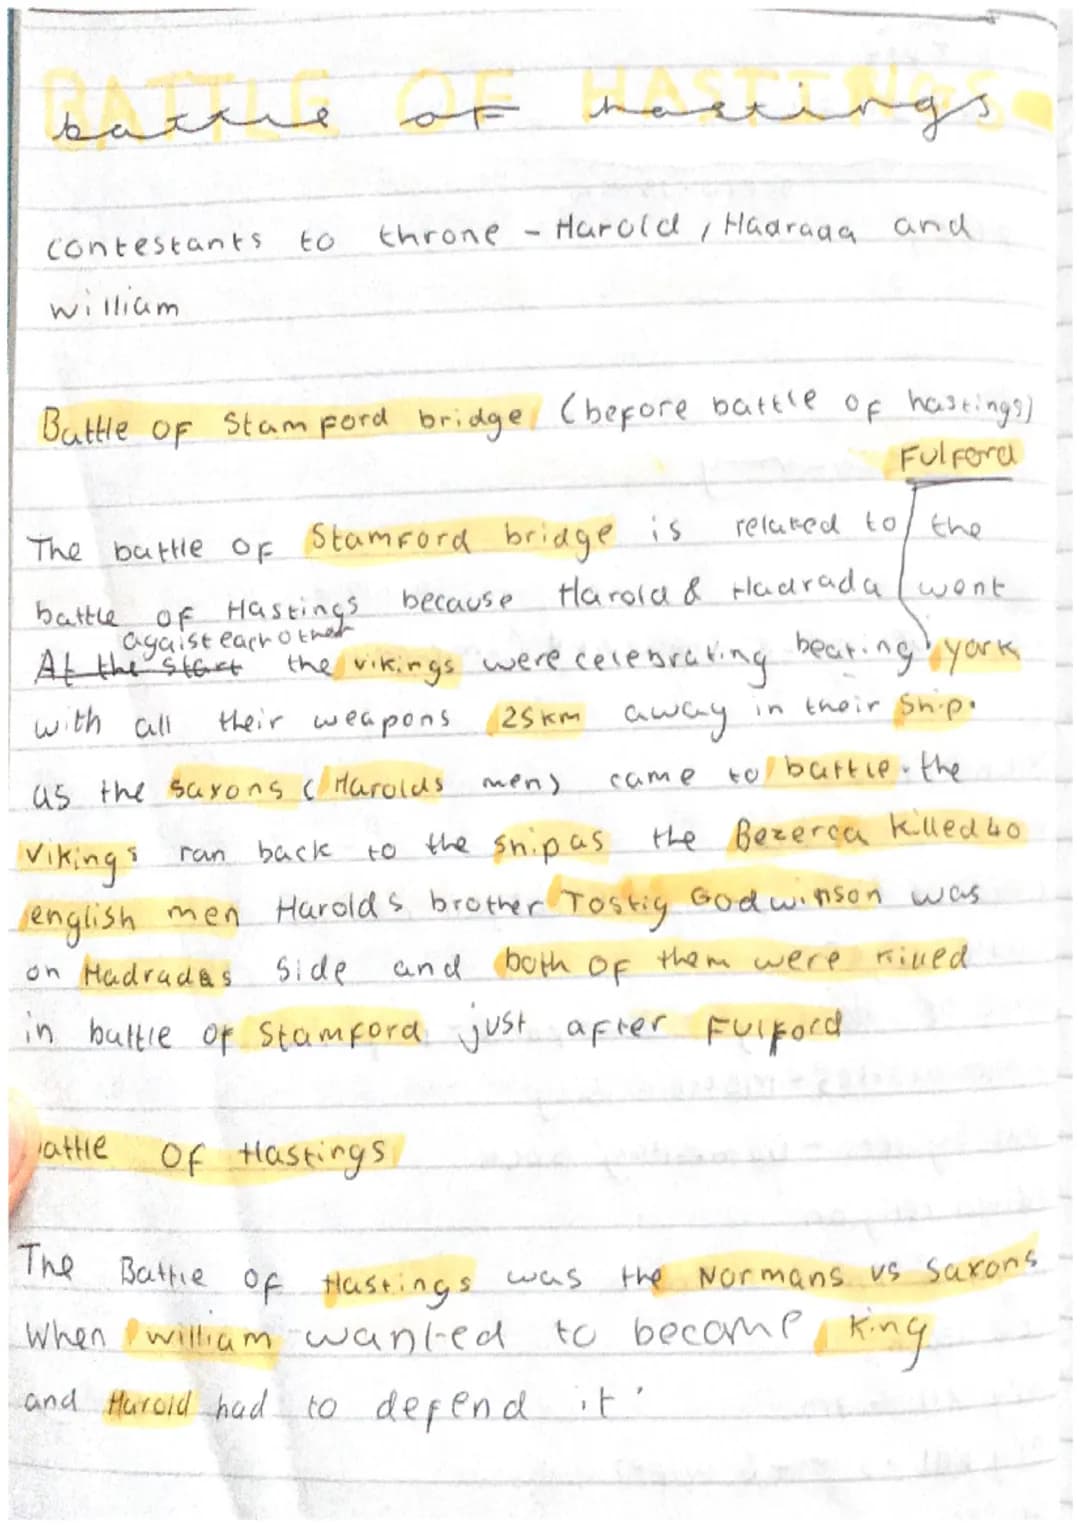 BATTLE OF HASTINGS
battle of hastings
contestants to throne - Harold, Hadrada and
william
Battle of Stamford bridge (before battle of hastings)
Fulford
The battle of Stamford bridge is related to the
battle of Hastings because Harold & Hadrada went
agaist each other
At the start the vikings were celebrating beating york
with all their weapons 25km away in their Ship.
as the saxons (Harolds men) came to battle. the
Vikings ran back to the ship as the Bezerca killed 40
english men Harolds brother Tostig Godwinson was
on Hadradas side and both of them were killed
in battle of Stamford just after Fulford
attle of Hastings
The Battle of Hastings was the Normans vs Saxons
When william wanted to become King
and Harold had to defend it.